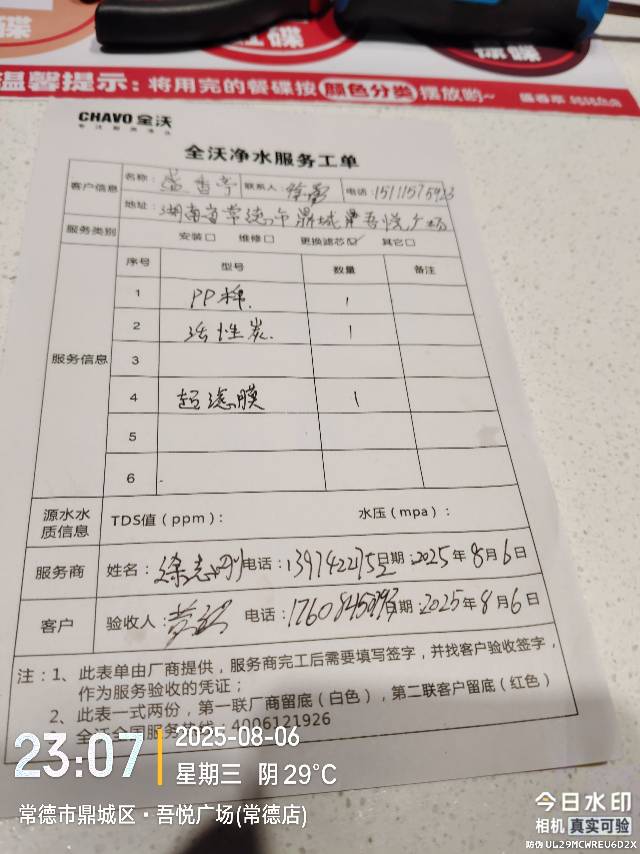 温馨提示：将用完的餐碟按 颜色分类 摆放哟~
CHAVO全沃
全沃净水服务工单
客户信息 名称： 联系人： 徐 电话：15111575923
地址：湖南省常德市鼎城 吾悦广场
服务类别 安装□ 维修□ 更换滤芯☑ 其它□
服务信息 序号 型号 数量 备注
1 PP棉. 1
2 活性炭. 1
3
4 超滤膜 1
5
6
源水水质信息 TDS值（ppm）： 水压（mpa）：
服务商 姓名：徐志刚 电话：13974221752 日期：2025年8月6日
客户 验收人： 电话： 日期：2025年8月6日
注：1、此表单由厂商提供，服务商完工后需要填写签字，并找客户验收签字，
作为服务验收的凭证；
2、此表一式两份，第一联厂商留底（白色），第二联客户留底（红色）
全沃全国服务热线：4006121926
23:07
2025-08-06
星期三 阴 29°C
常德市鼎城区·吾悦广场(常德店)
今日水印
相机 真实可验
防伪 UL29MCWREU6D2X